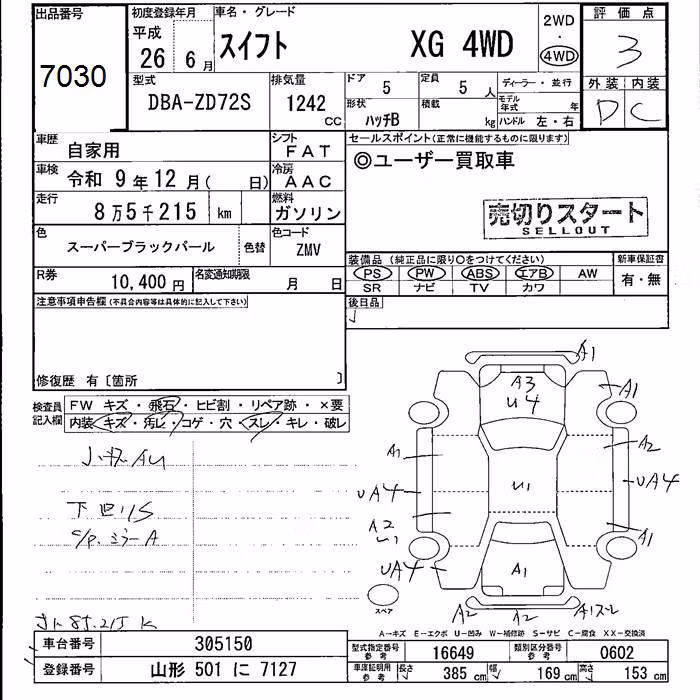 出品番号
7030
初度登録年月
平成
26 6月
車名・グレード
スイフト XG 4WD
2WD
・
4WD
評価点
3
外装 内装
D C
型式
DBA-ZD72S
排気量
1242
CC
ドア
5
定員
5 人
形状
ハッチB
積載
kg
ディーラー・並行
モデル
年式 年
ハンドル 左・右
車歴
自家用
シフト
FAT
車検
令和 9年12月( 日)
冷房
AAC
走行
8万5千215 km
燃料
ガソリン
色
スーパーブラックパール
色替
色コード
ZMV
R券
10,400 円
名変通知期限
月 日
セールスポイント(正常に機能するものに限ります)
◎ユーザー買取車
売切りスタート
SELLOUT
装備品(純正品に限り○をつけてください)
PS PW ABS エアB AW
SR ナビ TV カワ
新車保証書
有・無
後日品
注意事項申告欄(不具合内容等は具体的に記入して下さい)
修復歴 有〔箇所 〕
検査員
記入欄
FW キズ・飛石・ヒビ割・リペア跡・×要
内装 キズ・汚レ・コゲ・穴・スレ・キレ・破レ
小キズ AU
下回りS
ミラーA
85.215 K
A1
A3
U4
A1
A1
A2
UA4
U1
UA4
A2
U1
A1
UA4
A1
スペア
A2
A2
A1スレ
A-キズ E-エクボ U-凹み W-補修跡 S-サビ C-腐食 XX-交換済
車台番号
305150
登録番号
山形 501 に 7127
型式指定番号
参考
16649
類別区分番号
参考
0602
車庫証明用
参考
長さ
385 cm
幅
169 cm
高さ
153 cm